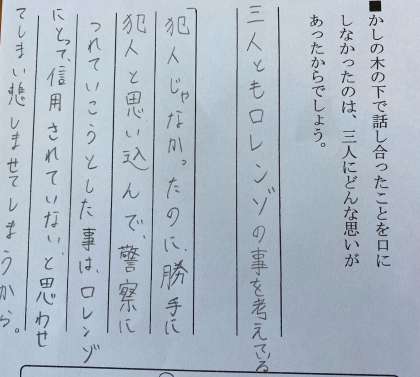 ■かしの木の下で話し合ったことを口に
しなかったのは、三人にどんな思いが
あったからでしょう。
三人ともロレンゾの事を考えている
「犯人じゃなかったのに、勝手に
犯人と思い込んで、警察に
つれていこうとした事は、ロレンゾ
にとって、信用されていない、と思わせ
てしまい悲しませてしまうから。